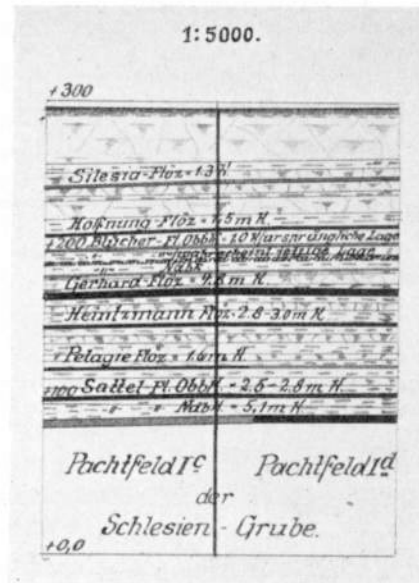 1:5000.
+300
Silesia-Flöz = 1.3 M
Hoffnung-Flöz = 1,5m K.
+200 Blücher-Fl. Obbk = 1.0 M (ursprüngliche Lage
Ndbk
Gerhard-Flöz = 4.8 m K.
Heintzmann Flöz - 2.8-3.0m K.
Pelagie Flöz = 1.4m K.
+100 Sattel-Fl. Obbk = 2.6-2.8m K.
" " Ndbk = 5,1m K.
Pachtfeld Ic Pachtfeld Id
der
Schlesien-Grube.
+0,0